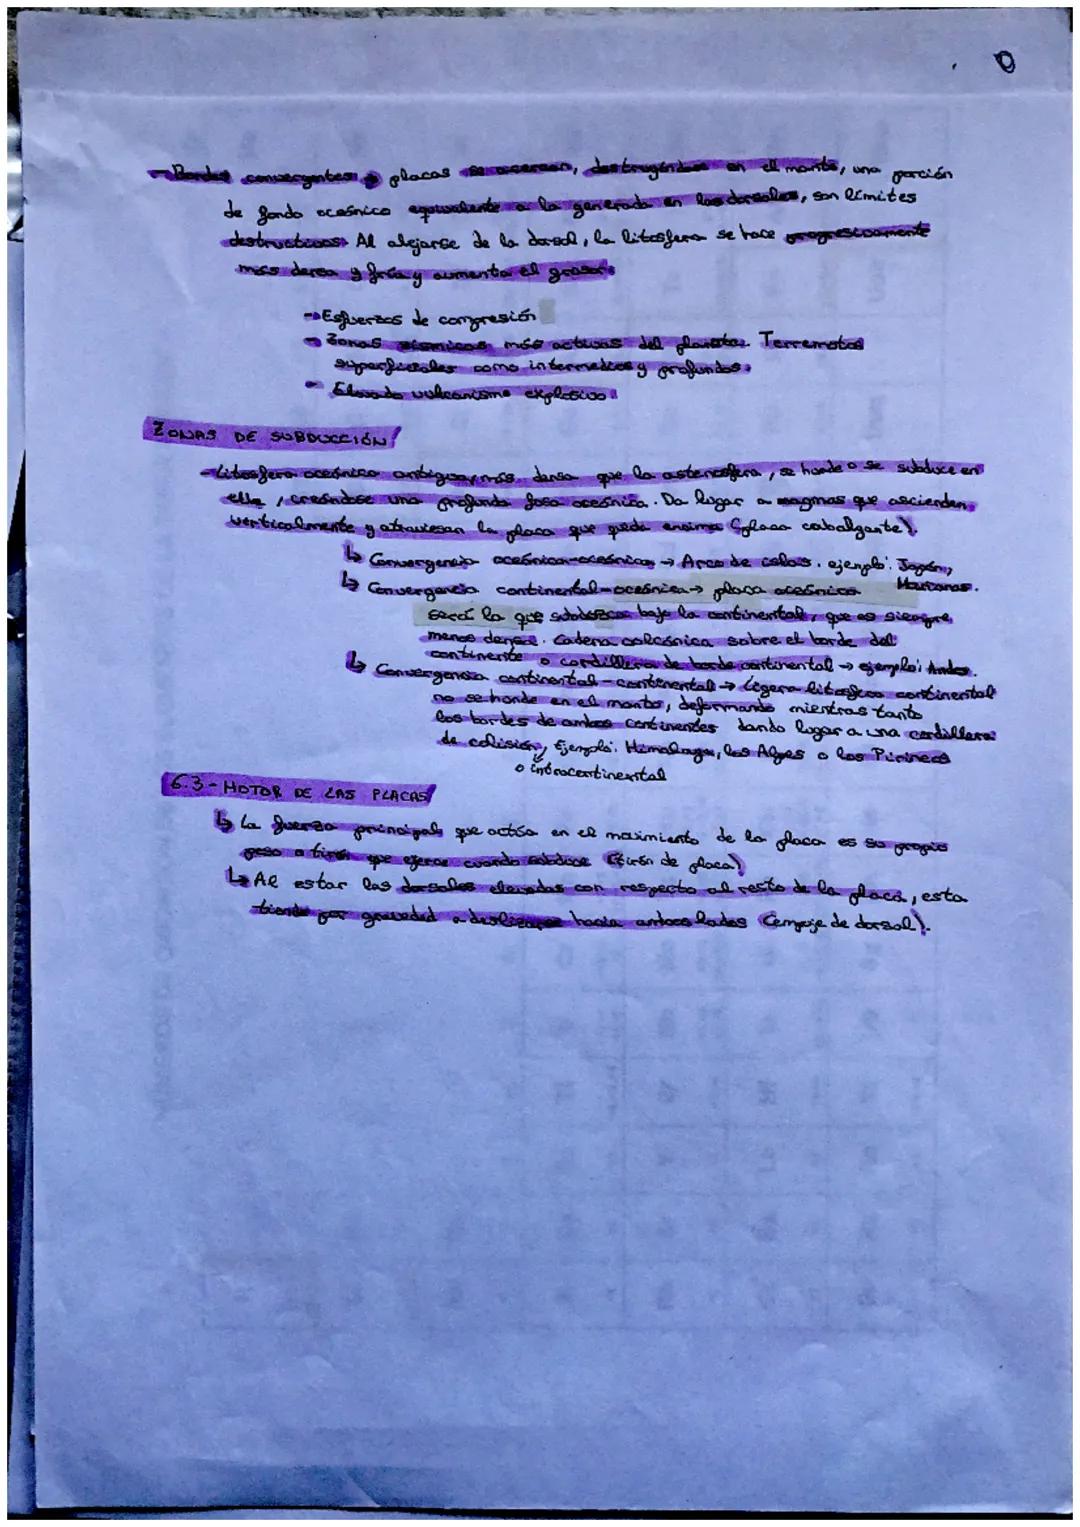 - Bordes convergentes → placas se acercan, destruyéndose en el manto, una porción
de fondo oceánico equivalente a la generada en las dorsales, son límites
destructivos. Al alejarse de la dorsal, la litosfera se hace progresivamente
más densa y fría y aumenta el grosor.
→ Esfuerzos de compresión
→ Zonas sísmicas más activas del planeta. Terremotos
superficiales como intermedios y profundos.
- Elevado vulcanismo explosivo
ZONAS DE SUBDUCCIÓN
- Litosfera oceánica antigua, más densa que la astenosfera, se hunde o se subduce en
ella, creándose una profunda fosa oceánica. Da lugar a magmas que ascienden
verticalmente y atraviesan la placa que queda encima (placa cabalgante).
↳ Convergencia oceánica-oceánica → Arco de islas. ejemplo: Japón,
Marianas.
↳ Convergencia continental-oceánica → placa oceánica
será la que subduzca bajo la continental, que es siempre
menos densa. Cadena volcánica sobre el borde del
continente o cordillera de borde continental → ejemplo: Andes.
↳ Convergencia continental-continental → Ligera litosfera continental
no se hunde en el manto, deformando mientras tanto
los bordes de ambos continentes dando lugar a una cordillera
de colisión, Ejemplo: Himalaya, los Alpes o los Pirineos
o intracontinental
6.3- MOTOR DE LAS PLACAS
↳ La fuerza principal que actúa en el movimiento de la placa es su propio
peso o tirón que ejerce cuando subduce (tirón de placa)
↳ Al estar las dorsales elevadas con respecto al resto de la placa, esta
tiende por gravedad a deslizarse hacia ambos lados (empuje de dorsal).